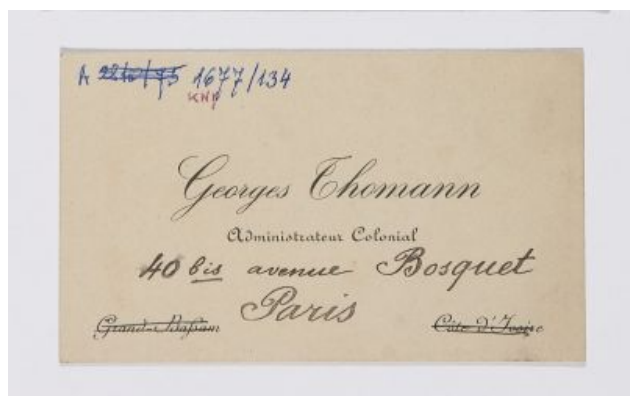 A 22/10/75 1677/134
KNJ
Georges Thomann
Administrateur Colonial
40 bis avenue Bosquet
Paris
Grand-Bassam Côte d'Ivoire